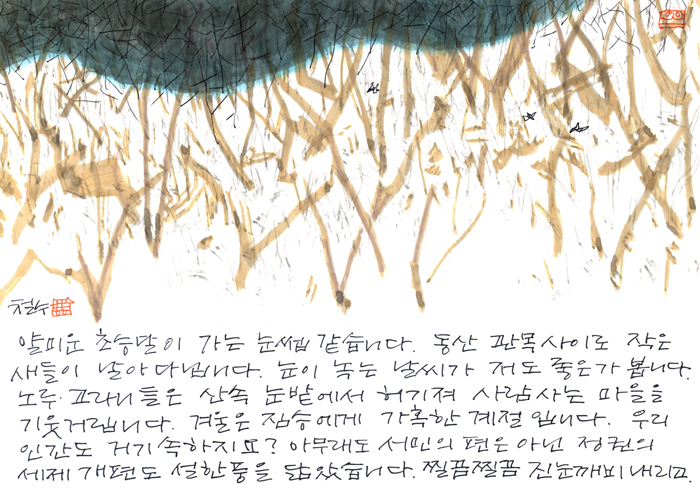 철수
얄미운 초승달이 가는 눈썹 같습니다. 동산 관목사이로 작은
새들이 날아다닙니다. 눈이 녹는 날씨가 저도 좋은가 봅니다.
노루·고라니들은 산속 눈밭에서 허기져 사람사는 마을을
기웃거립니다. 겨울은 짐승에게 가혹한 계절입니다. 우리
인간도 거기 속하지요? 아무래도 서민의 편은 아닌 정권의
세제 개편도 설한풍을 닮았습니다. 찔끔찔끔 진눈깨비 내리고.